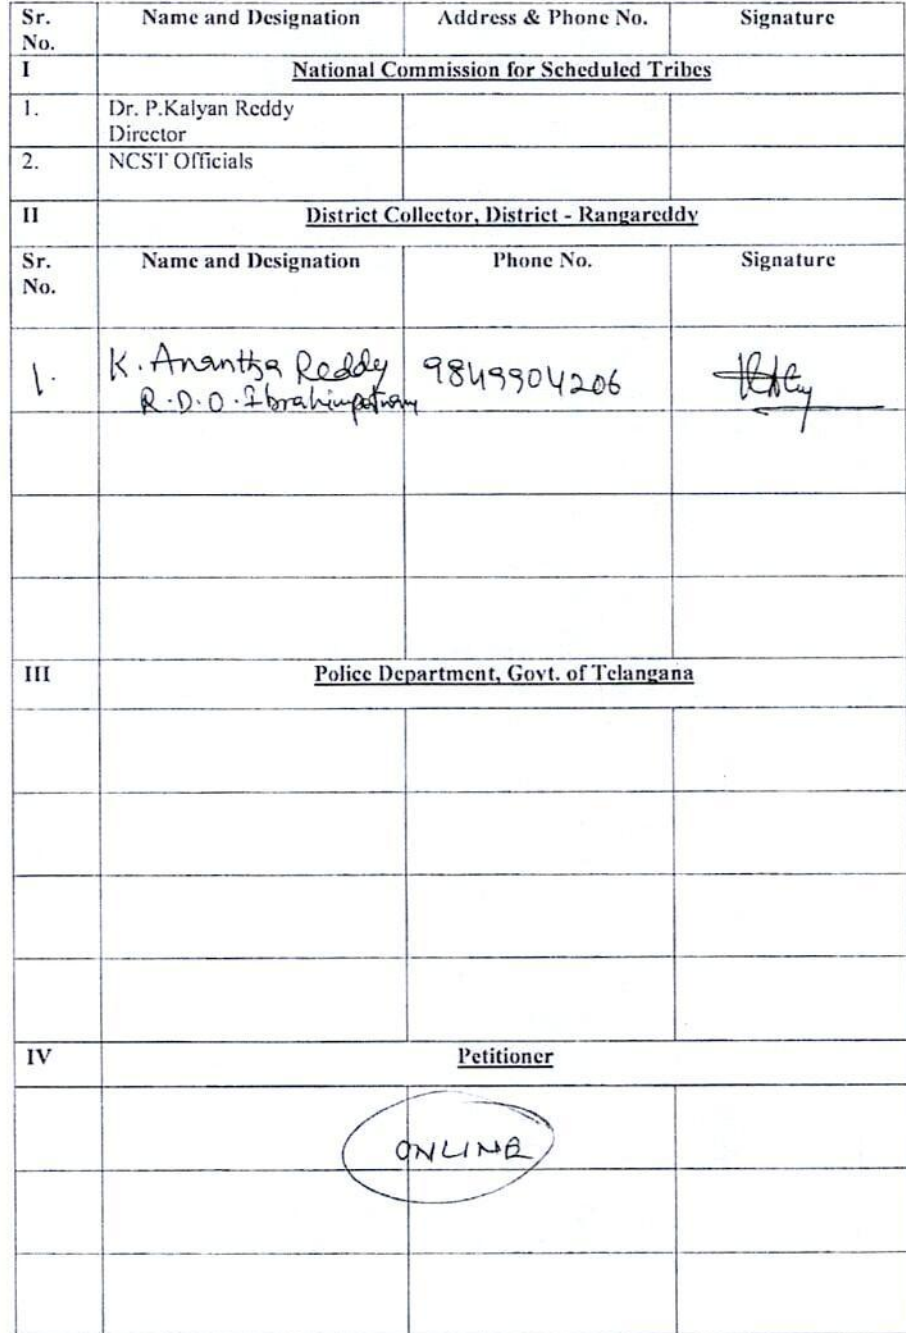 Sr. No. Name and Designation Address & Phone No. Signature
I National Commission for Scheduled Tribes
1. Dr. P.Kalyan Reddy
Director
2. NCST Officials
II District Collector, District - Rangareddy
Sr. No. Name and Designation Phone No. Signature
1. K. Anantha Reddy 9849904206
R.D.O. Ibrahimpatnam
III Police Department, Govt. of Telangana
IV Petitioner
ONLINE